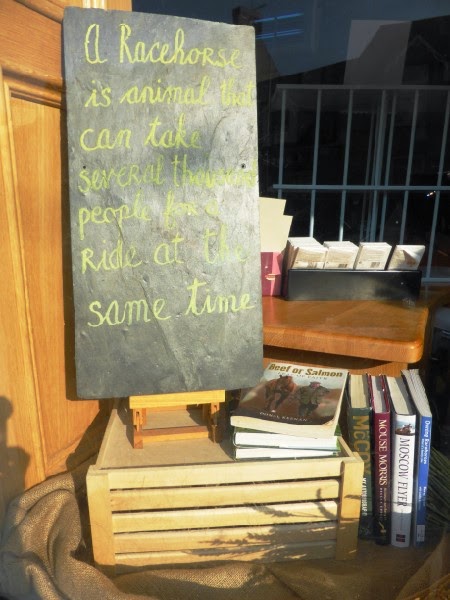 A Racehorse
is animal that
can take
several thousand
people for a
ride at the
same time
Beef or Salmon
MCCOY
MOUSE MORRIS
MOSCOW FLYER